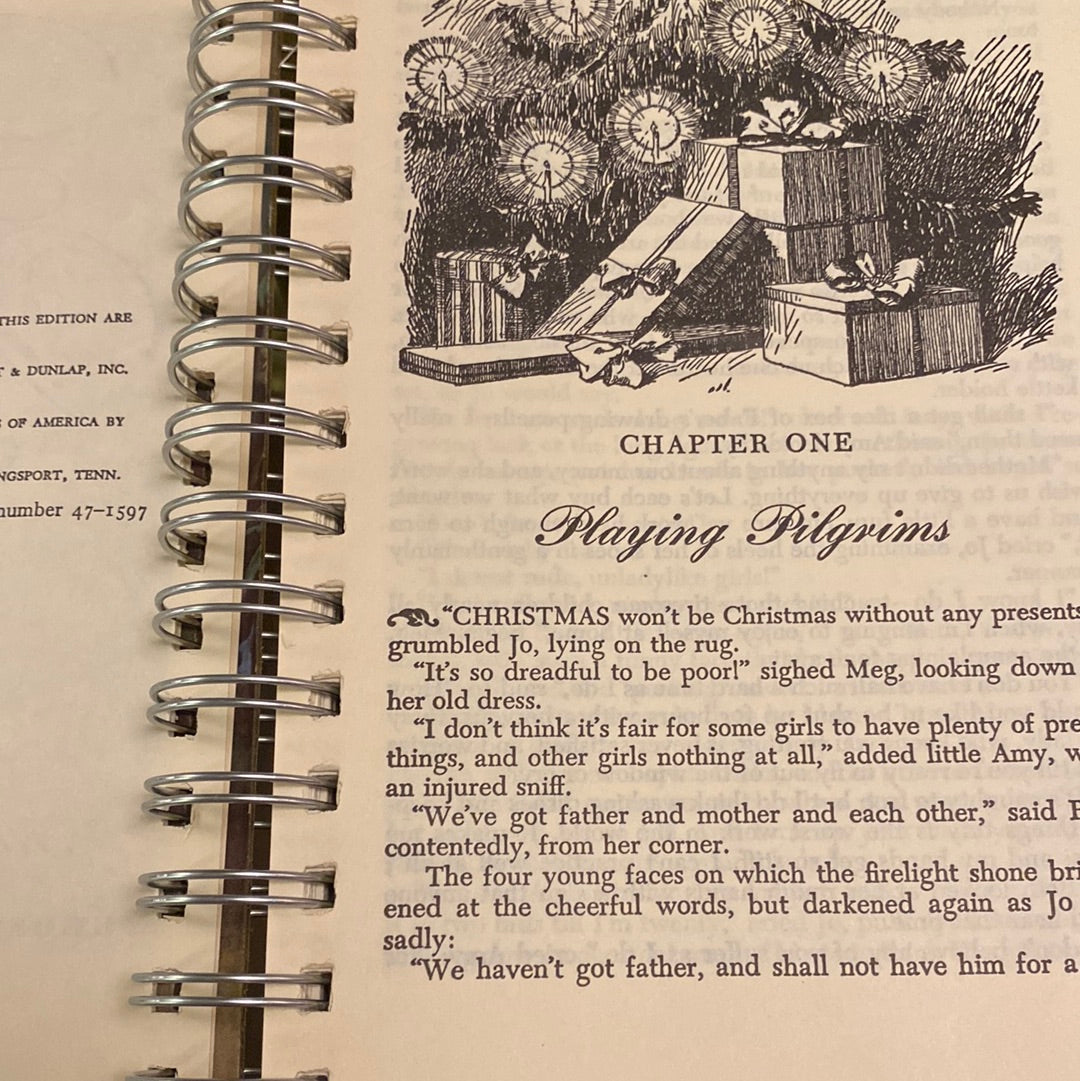 THIS EDITION ARE
& DUNLAP, INC.
OF AMERICA BY
NGSPORT, TENN.
number 47–1597
CHAPTER ONE
Playing Pilgrims
“CHRISTMAS won’t be Christmas without any presents
grumbled Jo, lying on the rug.
“It’s so dreadful to be poor!” sighed Meg, looking down
her old dress.
“I don’t think it’s fair for some girls to have plenty of pre
things, and other girls nothing at all,” added little Amy, w
an injured sniff.
“We’ve got father and mother and each other,” said B
contentedly, from her corner.
The four young faces on which the firelight shone bri
ened at the cheerful words, but darkened again as Jo
sadly:
“We haven’t got father, and shall not have him for a